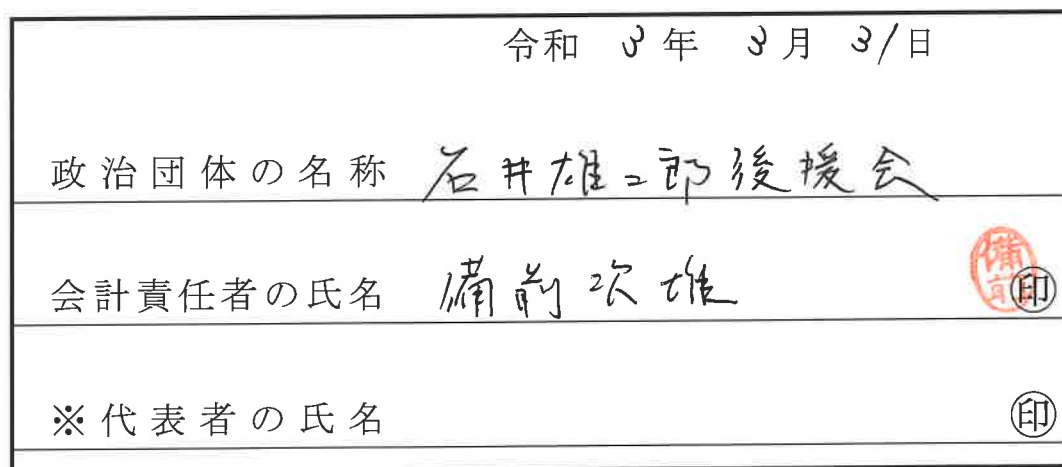 令和 3年 3月 31日
政治団体の名称 石井雄二郎後援会
会計責任者の氏名 備前次雄 備前 ㊞
※代表者の氏名 ㊞